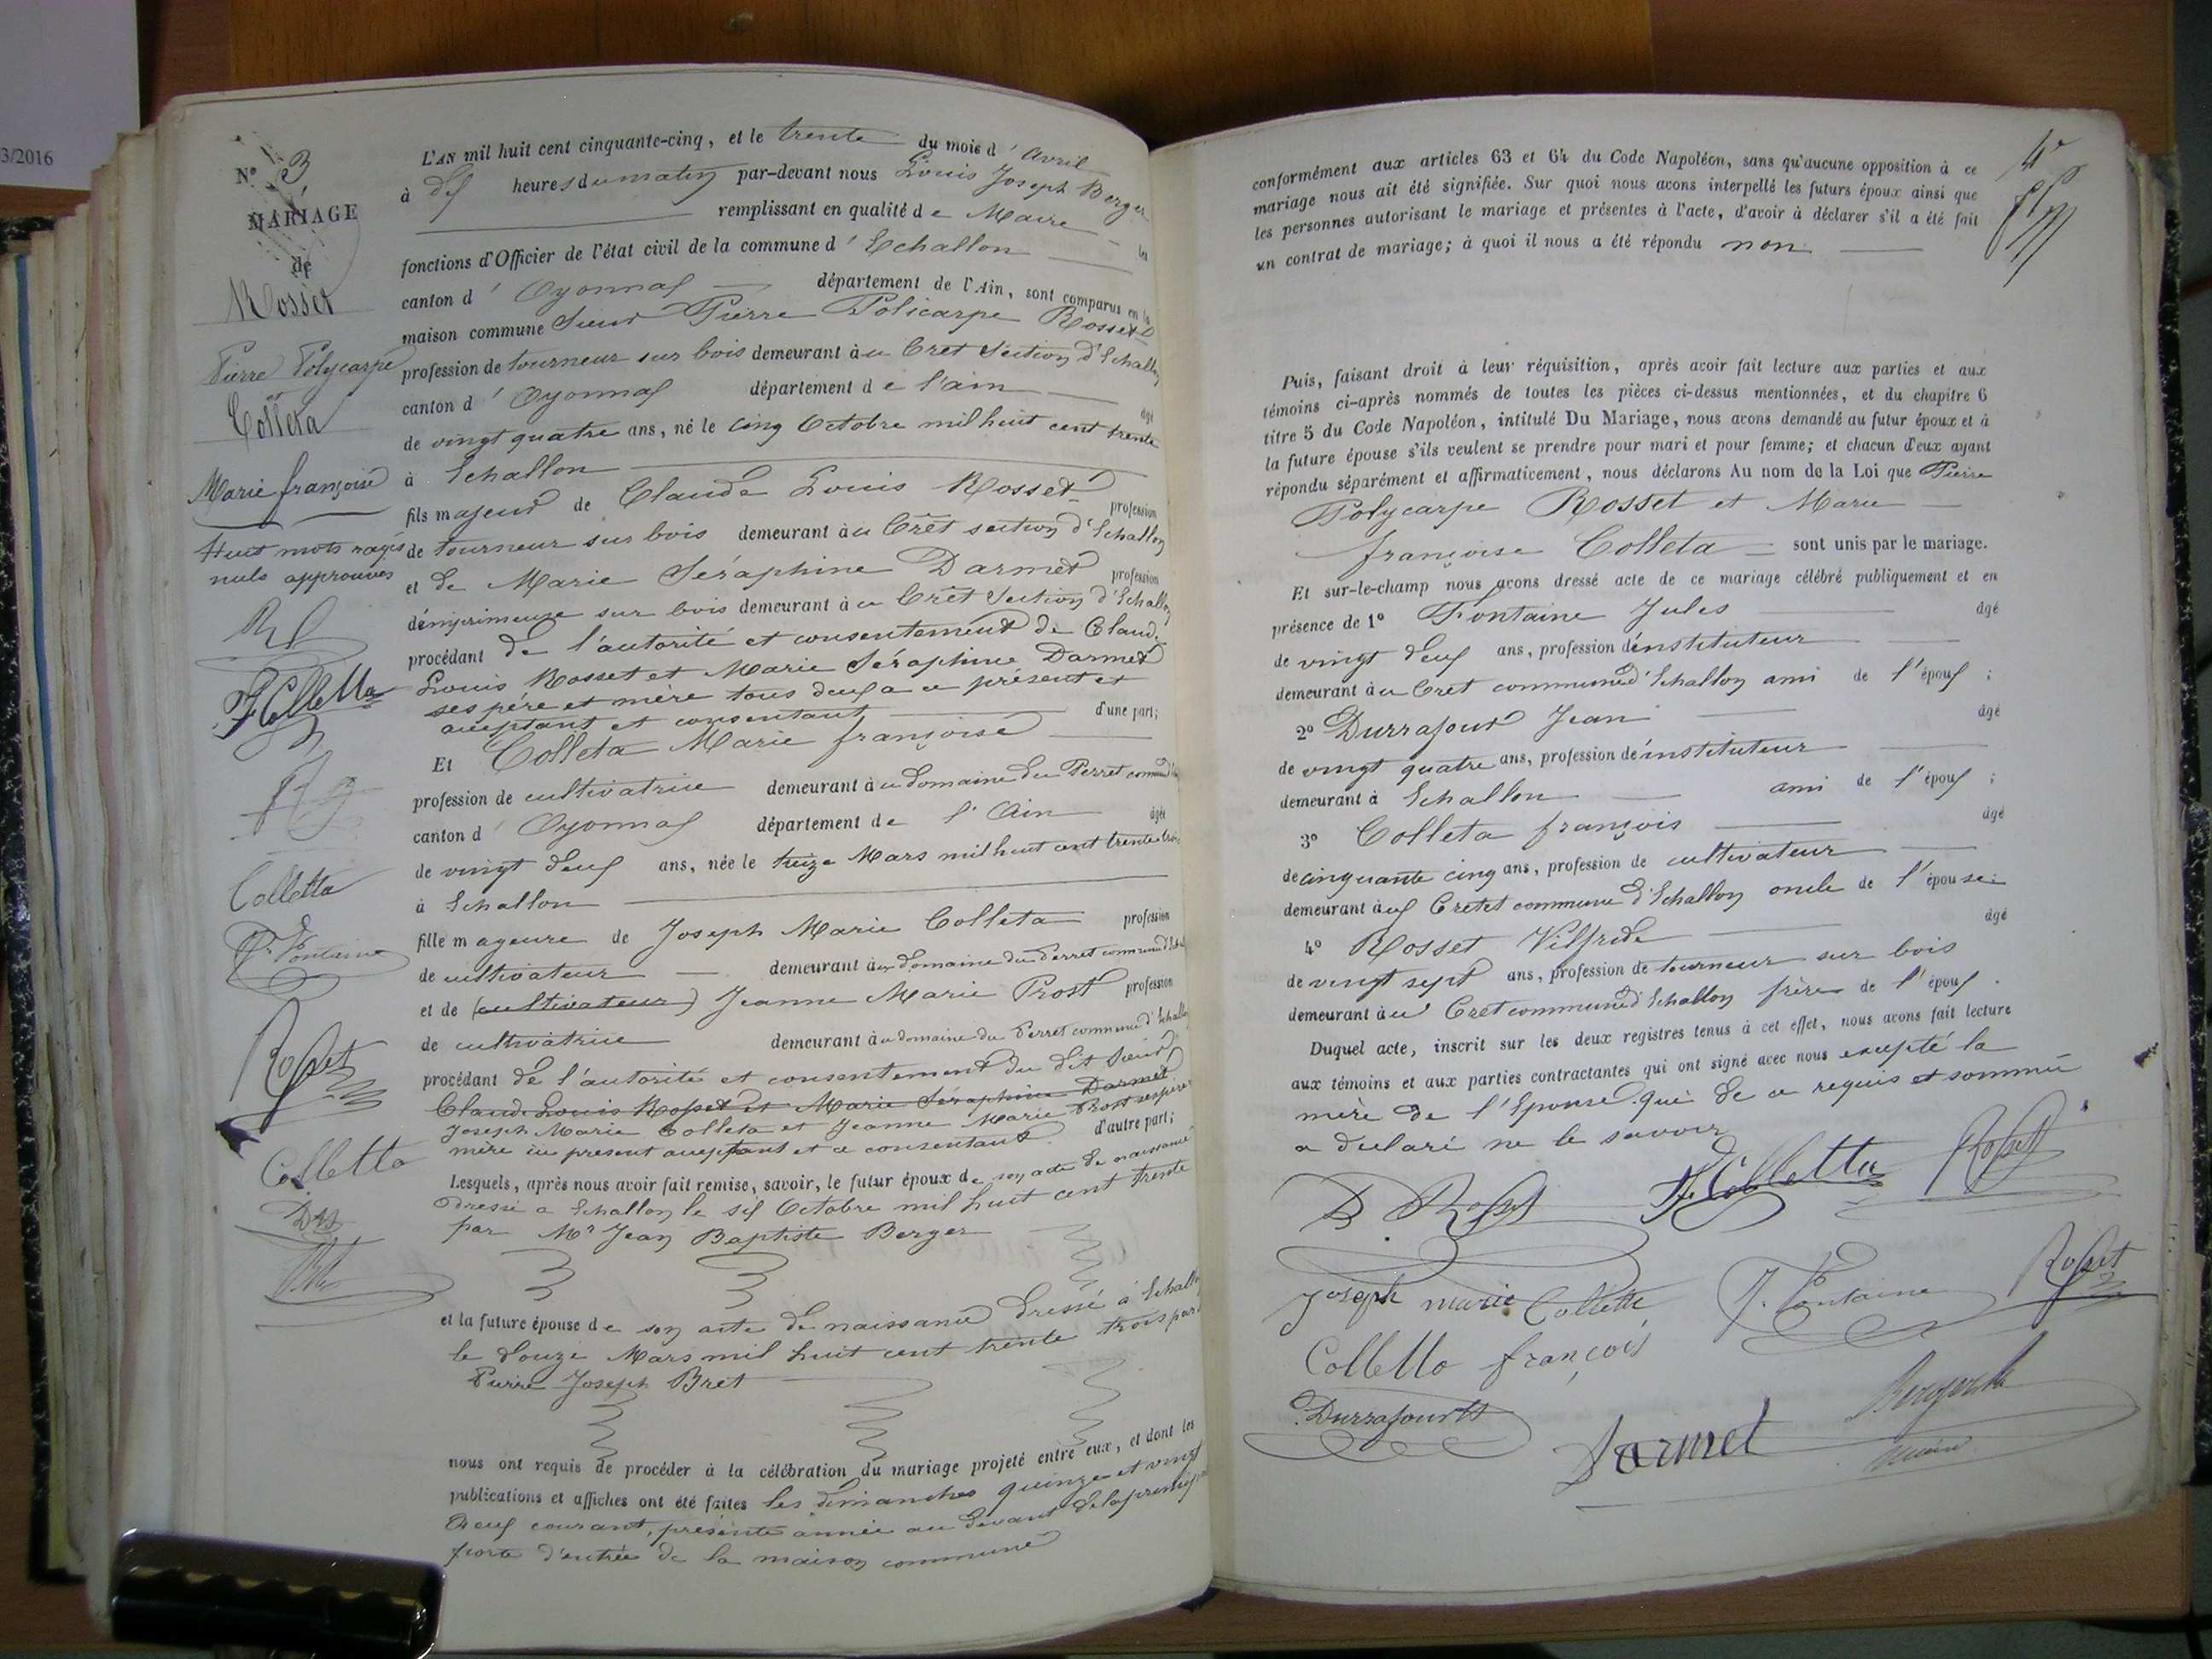 3/2016
N° 3
MARIAGE
de
Rosset
Pierre Polycarpe
et
Colleta
Marie françoise
Huit mots rayés
nuls approuvés
F Colletta
Colletta
J. Fontaine
Rosset
Colletta
L'AN mil huit cent cinquante-cinq, et le trente du mois d'Avril
à dix heures du matin par-devant nous Louis Joseph Berger
remplissant en qualité de Maire les
fonctions d'Officier de l'état civil de la commune d'Echallon
canton d'Oyonnax département de l'Ain, sont comparus en la
maison commune Sieur Pierre Policarpe Rosset
profession de tourneur sur bois demeurant au Crêt Section d'Echallon
canton d'Oyonnax département de l'ain âgé
de vingt quatre ans, né le cinq Octobre mil huit cent trente
à Echallon
fils majeur de Claude Louis Rosset profession
de tourneur sur bois demeurant au Crêt section d'Echallon
et de Marie Séraphine Darmet profession
d'imprimeuse sur bois demeurant au Crêt Section d'Echallon
procédant de l'autorité et consentement de Claude
Louis Rosset et Marie Séraphine Darmet
ses père et mère tous deux a ce présent et
acceptant et consentant d'une part;
Et Colleta Marie françoise
profession de cultivatrice demeurant au domaine du Perret
canton d'Oyonnax département de l'Ain âgée
de vingt deux ans, née le treize Mars mil huit cent trente trois
à Echallon
fille mageure de Joseph Marie Colleta profession
de cultivateur demeurant au domaine du Perret commune
et de (cultivateur) Jeanne Marie Prost profession
de cultivatrice demeurant au domaine du Perret commune d'Echallon
procédant de l'autorité et consentement du dit Sieur
Claude Louis Rosset et Marie Séraphine Darmet
Joseph Marie Colleta et Jeanne Marie Prost
mère ici present acceptant et a consentant d'autre part;
Lesquels, après nous avoir fait remise, savoir, le futur époux de son acte de naissance
dressé a Echallon le six Octobre mil huit cent trente
par Mr Jean Baptiste Berger
et la future épouse de son acte de naissance dressé à Echallon
le douze Mars mil huit cent trente trois par
Pierre Joseph Bret
nous ont requis de procéder à la célébration du mariage projeté entre eux, et dont les
publications et affiches ont été faites les dimanches quinze et vingt
deux courant, présente année au devant de la principale
porte d'entrée de la maison commune
4e
conformément aux articles 63 et 64 du Code Napoléon, sans qu'aucune opposition à ce
mariage nous ait été signifiée. Sur quoi nous avons interpellé les futurs époux ainsi que
les personnes autorisant le mariage et présentes à l'acte, d'avoir à déclarer s'il a été fait
un contrat de mariage; à quoi il nous a été répondu non
Puis, faisant droit à leur réquisition, après avoir fait lecture aux parties et aux
témoins ci-après nommés de toutes les pièces ci-dessus mentionnées, et du chapitre 6
titre 5 du Code Napoléon, intitulé Du Mariage, nous avons demandé au futur époux et à
la future épouse s'ils veulent se prendre pour mari et pour femme; et chacun d'eux ayant
répondu séparément et affirmativement, nous déclarons Au nom de la Loi que Pierre
Polycarpe Rosset et Marie
françoise Colleta sont unis par le mariage.
Et sur-le-champ nous avons dressé acte de ce mariage célébré publiquement et en
présence de 1° Fontaine Jules âgé
de vingt deux ans, profession d'instituteur
demeurant au Crêt commune d'Echallon ami de l'époux;
2° Durrafour Jean âgé
de vingt quatre ans, profession d'instituteur
demeurant à Echallon ami de l'époux;
3° Colleta françois âgé
de cinquante cinq ans, profession de cultivateur
demeurant aux Cretet commune d'Echallon oncle de l'épouse;
4° Rosset Vilfride âgé
de vingt sept ans, profession de tourneur sur bois
demeurant au Cret commune d'Echallon frère de l'époux.
Duquel acte, inscrit sur les deux registres tenus à cet effet, nous avons fait lecture
aux témoins et aux parties contractantes qui ont signé avec nous excepté la
mère de l'Epouse qui de ce requis et sommée
a déclaré ne le savoir
P Rosset F. Colletta Rosset
Joseph marie Collette J. Fontaine Rosset
Colletta françois
Durrafour
Darmet
maire